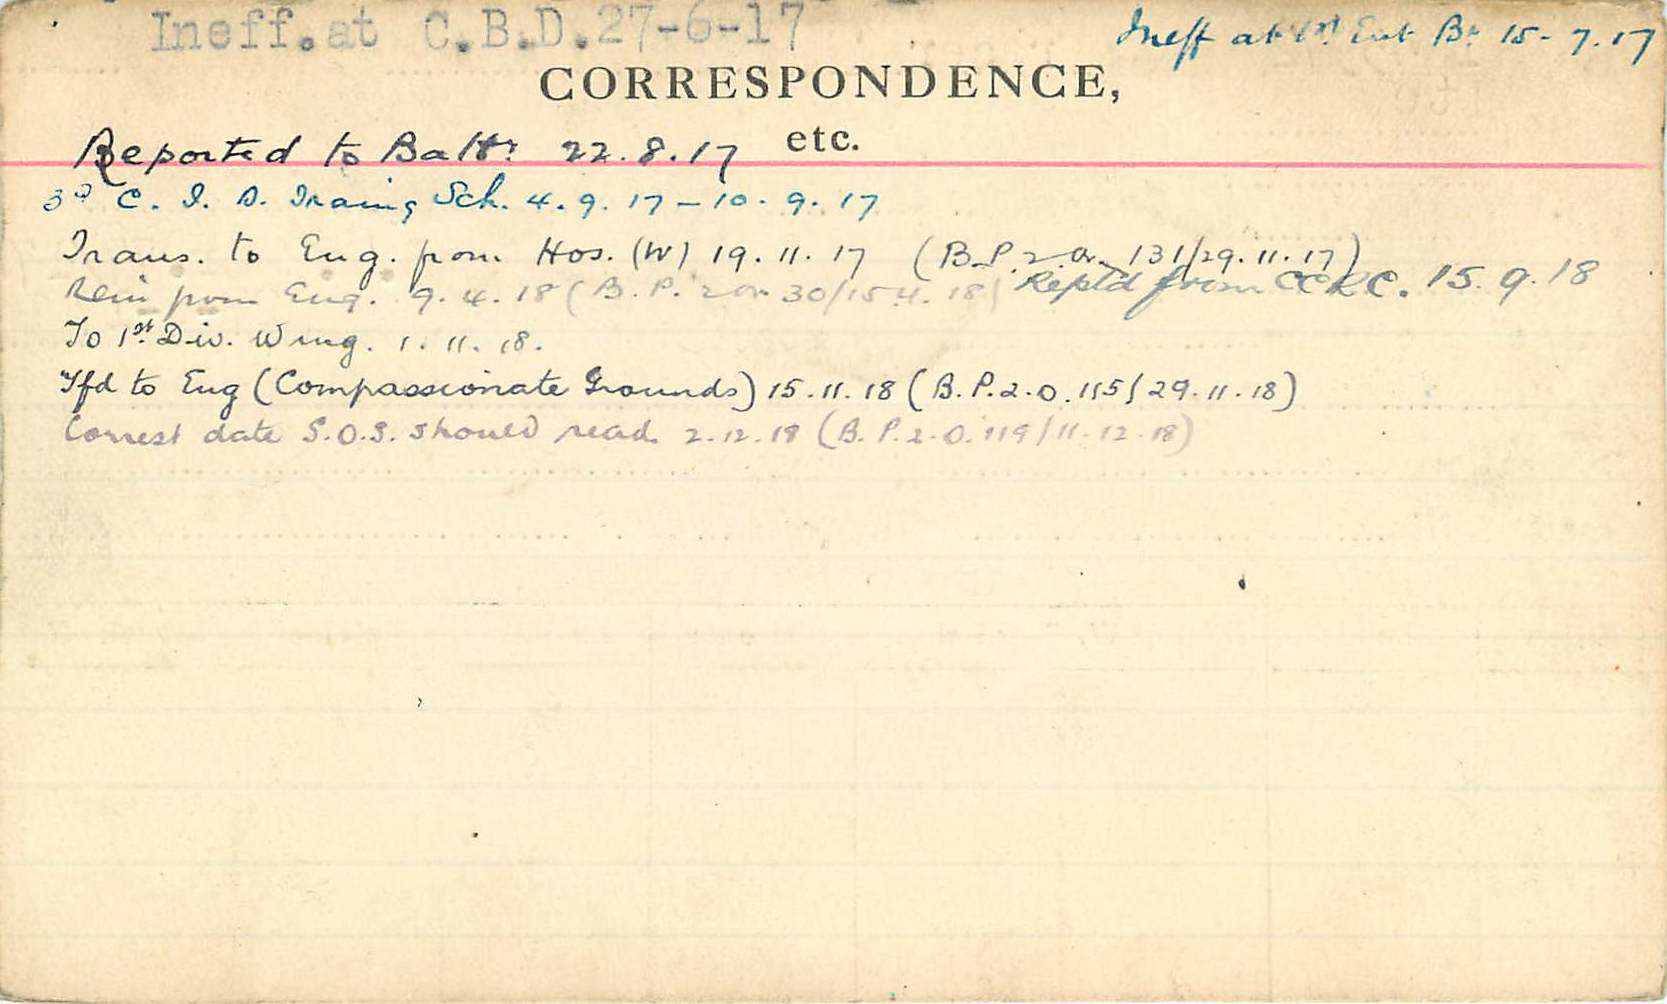 Ineff. at C.B.D. 27-6-17
Ineff at 1st Ent Bn 15-7.17
CORRESPONDENCE,
etc.
Reported to Battn 22.8.17
3rd C. I. D. Traing Sch. 4.9.17-10.9.17
Trans. to Eng. from Hos. (W) 19.11.17 (B.P. 2 Or. 131/29.11.17)
Rein from Eng. 9.4.18 (B.P. 2 or 30/15.4.18)
Reptd from CCRC. 15.9.18
To 1st Div. Wing. 1.11.18.
Tfd to Eng (Compassionate Grounds) 15.11.18 (B.P.2.O.115/29.11.18)
Correct date S.O.S. should read 2.12.18 (B.P.2.O.119/11.12.18)